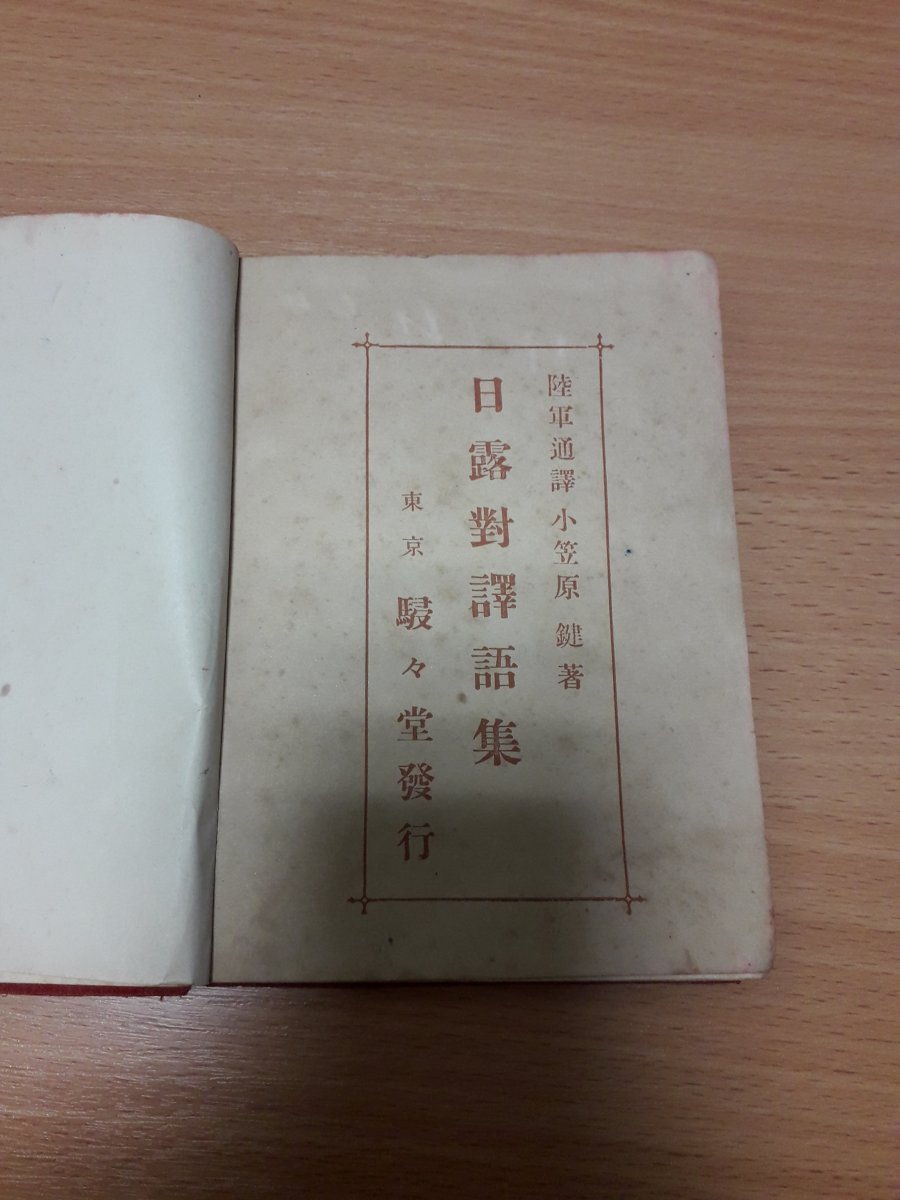 陸軍通譯 小笠原 鍵 著
日露對譯語集
東京 駸々堂發行